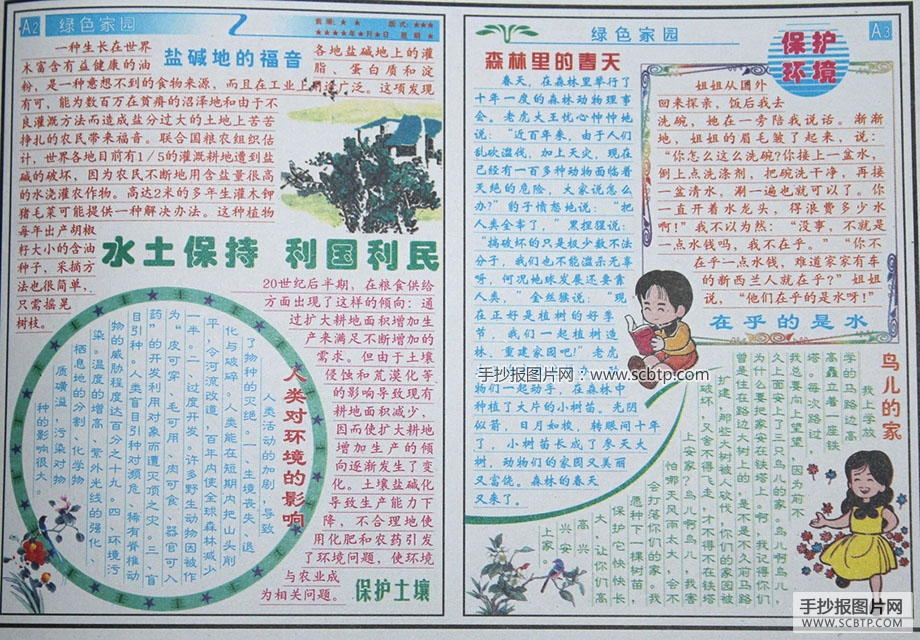 A2
绿色家园
责编：★ ★
版式：★★★
★★★★年★月★日 星期 ★
盐碱地的福音
一种生长在世界
各地盐碱地上的灌
木富含有益健康的油
脂、蛋白质和淀
粉，是一种意想不到的食物来源，而且在工业上用途广泛。这项发现
有可，能为数百万在贫瘠的沼泽地和由于不
良灌溉方法而造成盐分过大的土地上苦苦
挣扎的农民带来福音。联合国粮农组织估
计，世界各地目前有1/5的灌溉耕地遭到盐
碱的破坏，因为农民不断地用含盐量很高
的水浇灌农作物。高达2米的多年生灌木钾
猪毛菜可能提供一种解决办法。这种植物
每年出产胡椒
籽大小的含油
种子，采摘方
法也很简单，
只需摇晃
树枝。
水土保持 利国利民
20世纪后半期，在粮食供给
方面出现了这样的倾向：通
过扩大耕地面积增加生
产来满足不断增加的
需求。但由于土壤
侵蚀和荒漠化等
的影响导致现有
耕地面积减少，
因而使扩大耕地
增加生产的倾
向逐渐发生了变
化。土壤盐碱化
导致生产能力下
降，不合理地使
用化肥和农药引发
了环境问题，使环境
与农业成
为相关问题。
保护土壤
人类对环境的影响
人类活动的加剧，导致
了物种的灭绝。一、生境丧失、退
化与破碎。人类能在短期内把山头削
平，令河流改道，百年内使全球森林减少
一半。二、过度开发。许多野生动物因被作
为“皮可穿、毛可用、肉可食、器官可入
药”的开发利用对象而遭灭顶之灾。三、盲
目引种。人类盲目引种对濒危、稀有脊椎动
物的威胁程度达百分之十九。四、环境污
染。温度的增高，紫外光线的强化，
栖息地的分割，化学物
质磺溢，污染对物
种的影响很大。
绿色家园
A3
森林里的春天
春天，在森林里举行了
十年一度的森林动物理事
会。老虎大王忧心忡忡地
说：“近百年来，由于人们
乱砍滥伐，加上天灾，现在
已经有一百多种动物面临着
灭绝的危险，大家说怎么
办？”豹子愤怒地说：“把
人类全宰了，”黑猩猩说：
“搞破坏的只是极少数不法
分子，我们也不能滥杀无辜
呀，何况地球发展还要靠
人类，”金丝猴说：“现
在正好是植树的好季
节，我们一起植树造
林，重建家园吧！”老虎
们一起动手，在森林中
种植了大片的小树苗。光阴
似箭，日月如梭，转眼间十年
了，小树苗长成了参天大
树，动物们的家园又美丽
又富饶。森林的春天
又来了。
保护
环境
姐姐从国外
回来探亲，饭后我去
洗碗，她在一旁陪我说话。渐渐
地，姐姐的眉毛皱了起来，说：
“你怎么这么洗碗？你接上一盆水，
倒上点洗涤剂，把碗洗干净，再接
一盆清水，涮一遍也就可以了。你
一直开着水龙头，得浪费多少水
啊！”我不以为然：“没事，不就是
一点水钱吗，我不在乎。”“你不
在乎一点水钱，难道家家有车
的新西兰人就在乎？”姐姐
说，“他们在乎的是水呀！”
在乎的是水
鸟儿的家
我上学放
学的马路边高
高矗立着一座铁
塔。每次路过，
我总要向上望望，因为前不
久上面安上了鸟儿的家。啊，鸟儿，你
为什么要把家安在铁塔上。啊，我记得你们
曾是住在路边大树上的。是不是不久前马路
扩建，那些大树被人砍伐，你们的家园被
破坏，又舍不得飞走，才不得不在铁塔
上安家？鸟儿啊鸟儿，我害
怕哪天风雨太大，会不
会打落你们的家。我
愿种一棵树苗，
保护它快快长
大，让你们高
高兴兴安
上家。
手抄报图片网：www.scbtp.com
手抄报图片网
WWW.SCBTP.COM